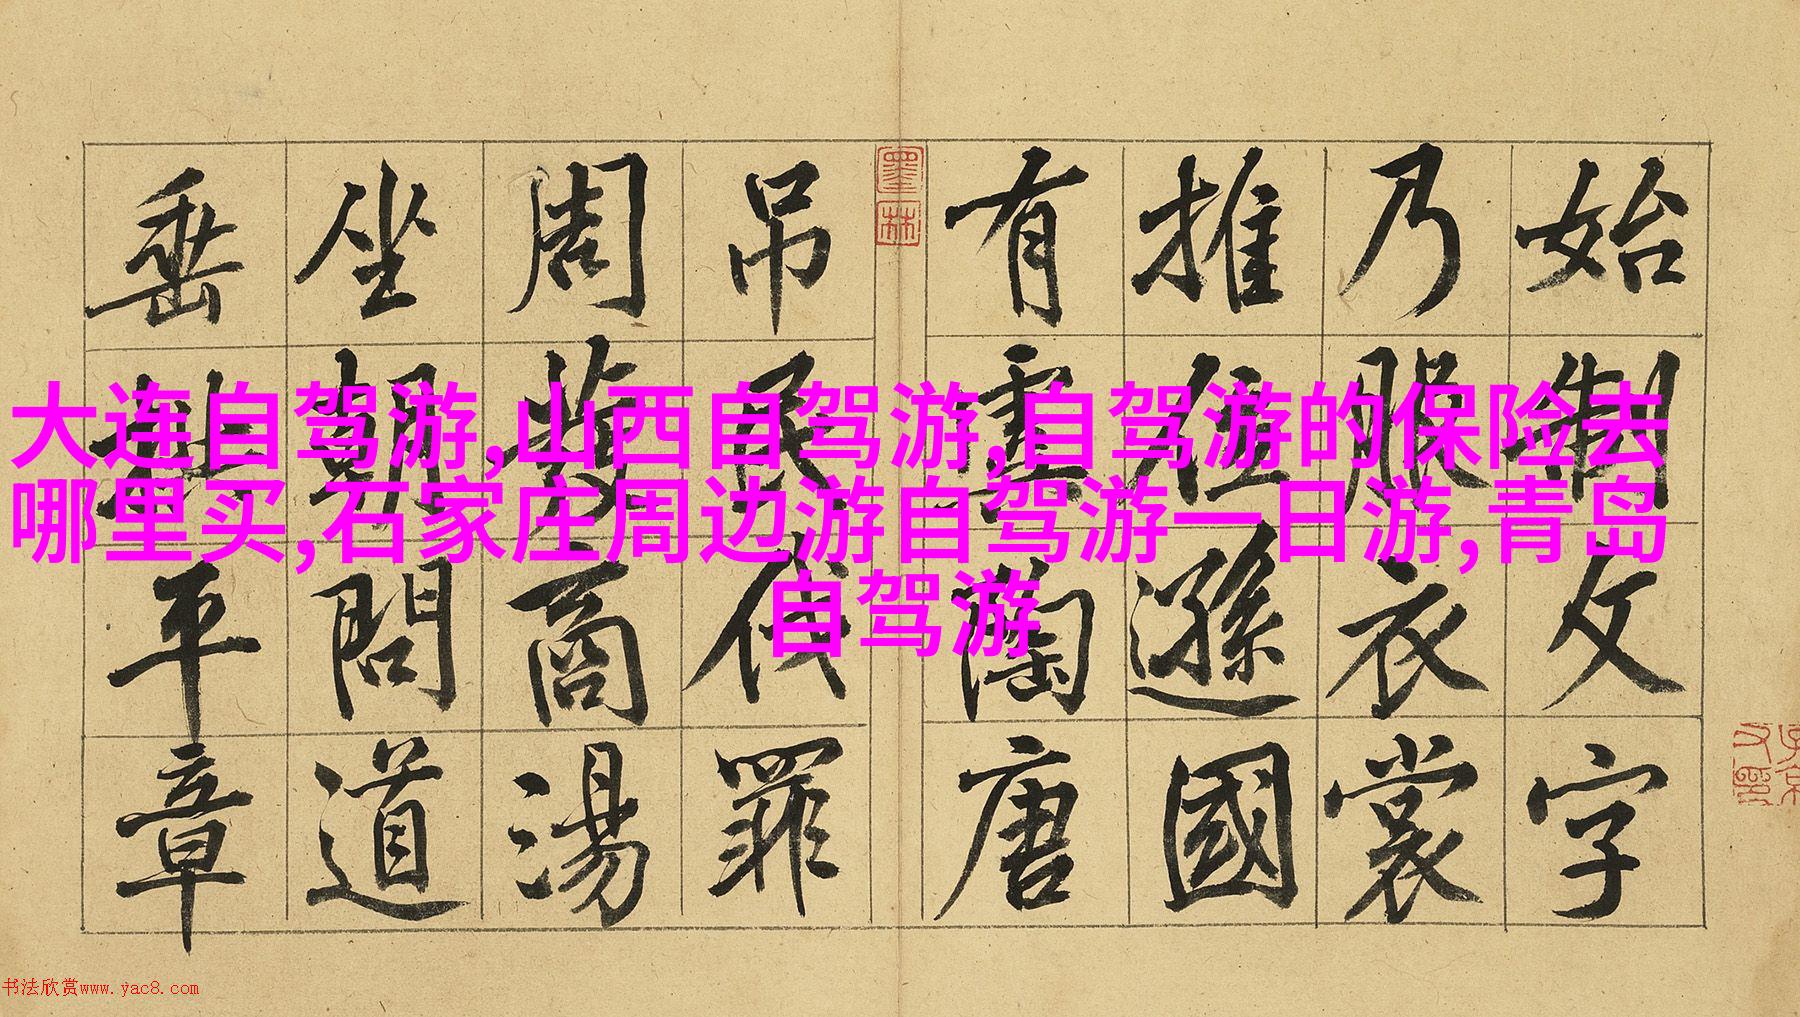 始制文字
乃服衣裳
推位遜國
有虞陶唐
墨林
吊民伐罪
周發商湯
坐朝問道
垂拱平章
大连自驾游,山西自驾游,自驾游的保险去
哪里买,石家庄周边游自驾游一日游,青岛
自驾游
书法欣赏www.yac8.com